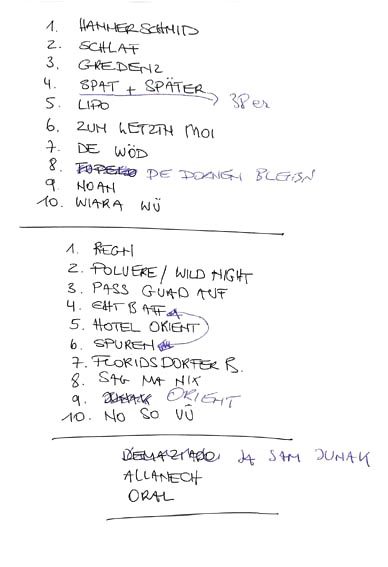 1. HAMMERSCHMID
2. SCHLAF
3. GREDENZ
4. SPAT + SPÄTER
5. LIPO 38er
6. ZUM LETZTN MOI
7. DE WÖD
8. DE DOANEN BLEIBN
9. NOAN
10. WIARA WÜ
1. REGN
2. POLVERE / WILD NIGHT
3. PASS GUAD AUF
4. EHT B AFF
5. HOTEL ORIENT
6. SPUREN
7. FLORIDSDORFER B.
8. SAG MA NIX
9. ORIENT
10. NO SO VÜ
DEMASIADO JA SAM JUNAK
ALLANECH
ORAL